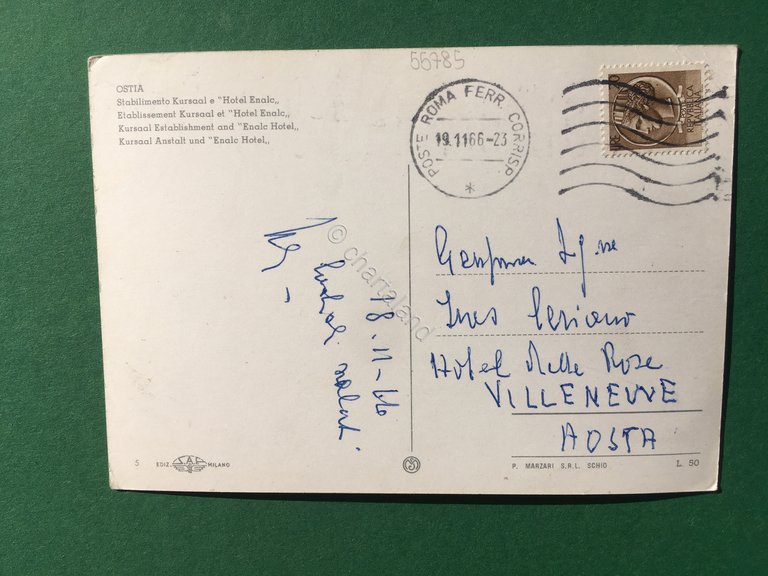 55785
OSTIA
Stabilimento Kursaal e "Hotel Enalc„
Etablissement Kursaal et "Hotel Enalc„
Kursaal Establishment and "Enalc Hotel„
Kursaal Anstalt und "Enalc Hotel„
POSTE ROMA FERR. CORRISP.
19.11 66-23
REPUBBLICA
ITALIANA
© chartaland
18-11-66
Cordiali saluti
Ines Ceriano
Hotel delle Rose
VILLENEUVE
AOSTA
5 EDIZ. S.A.F. MILANO
P. MARZARI S.R.L. SCHIO L. 50